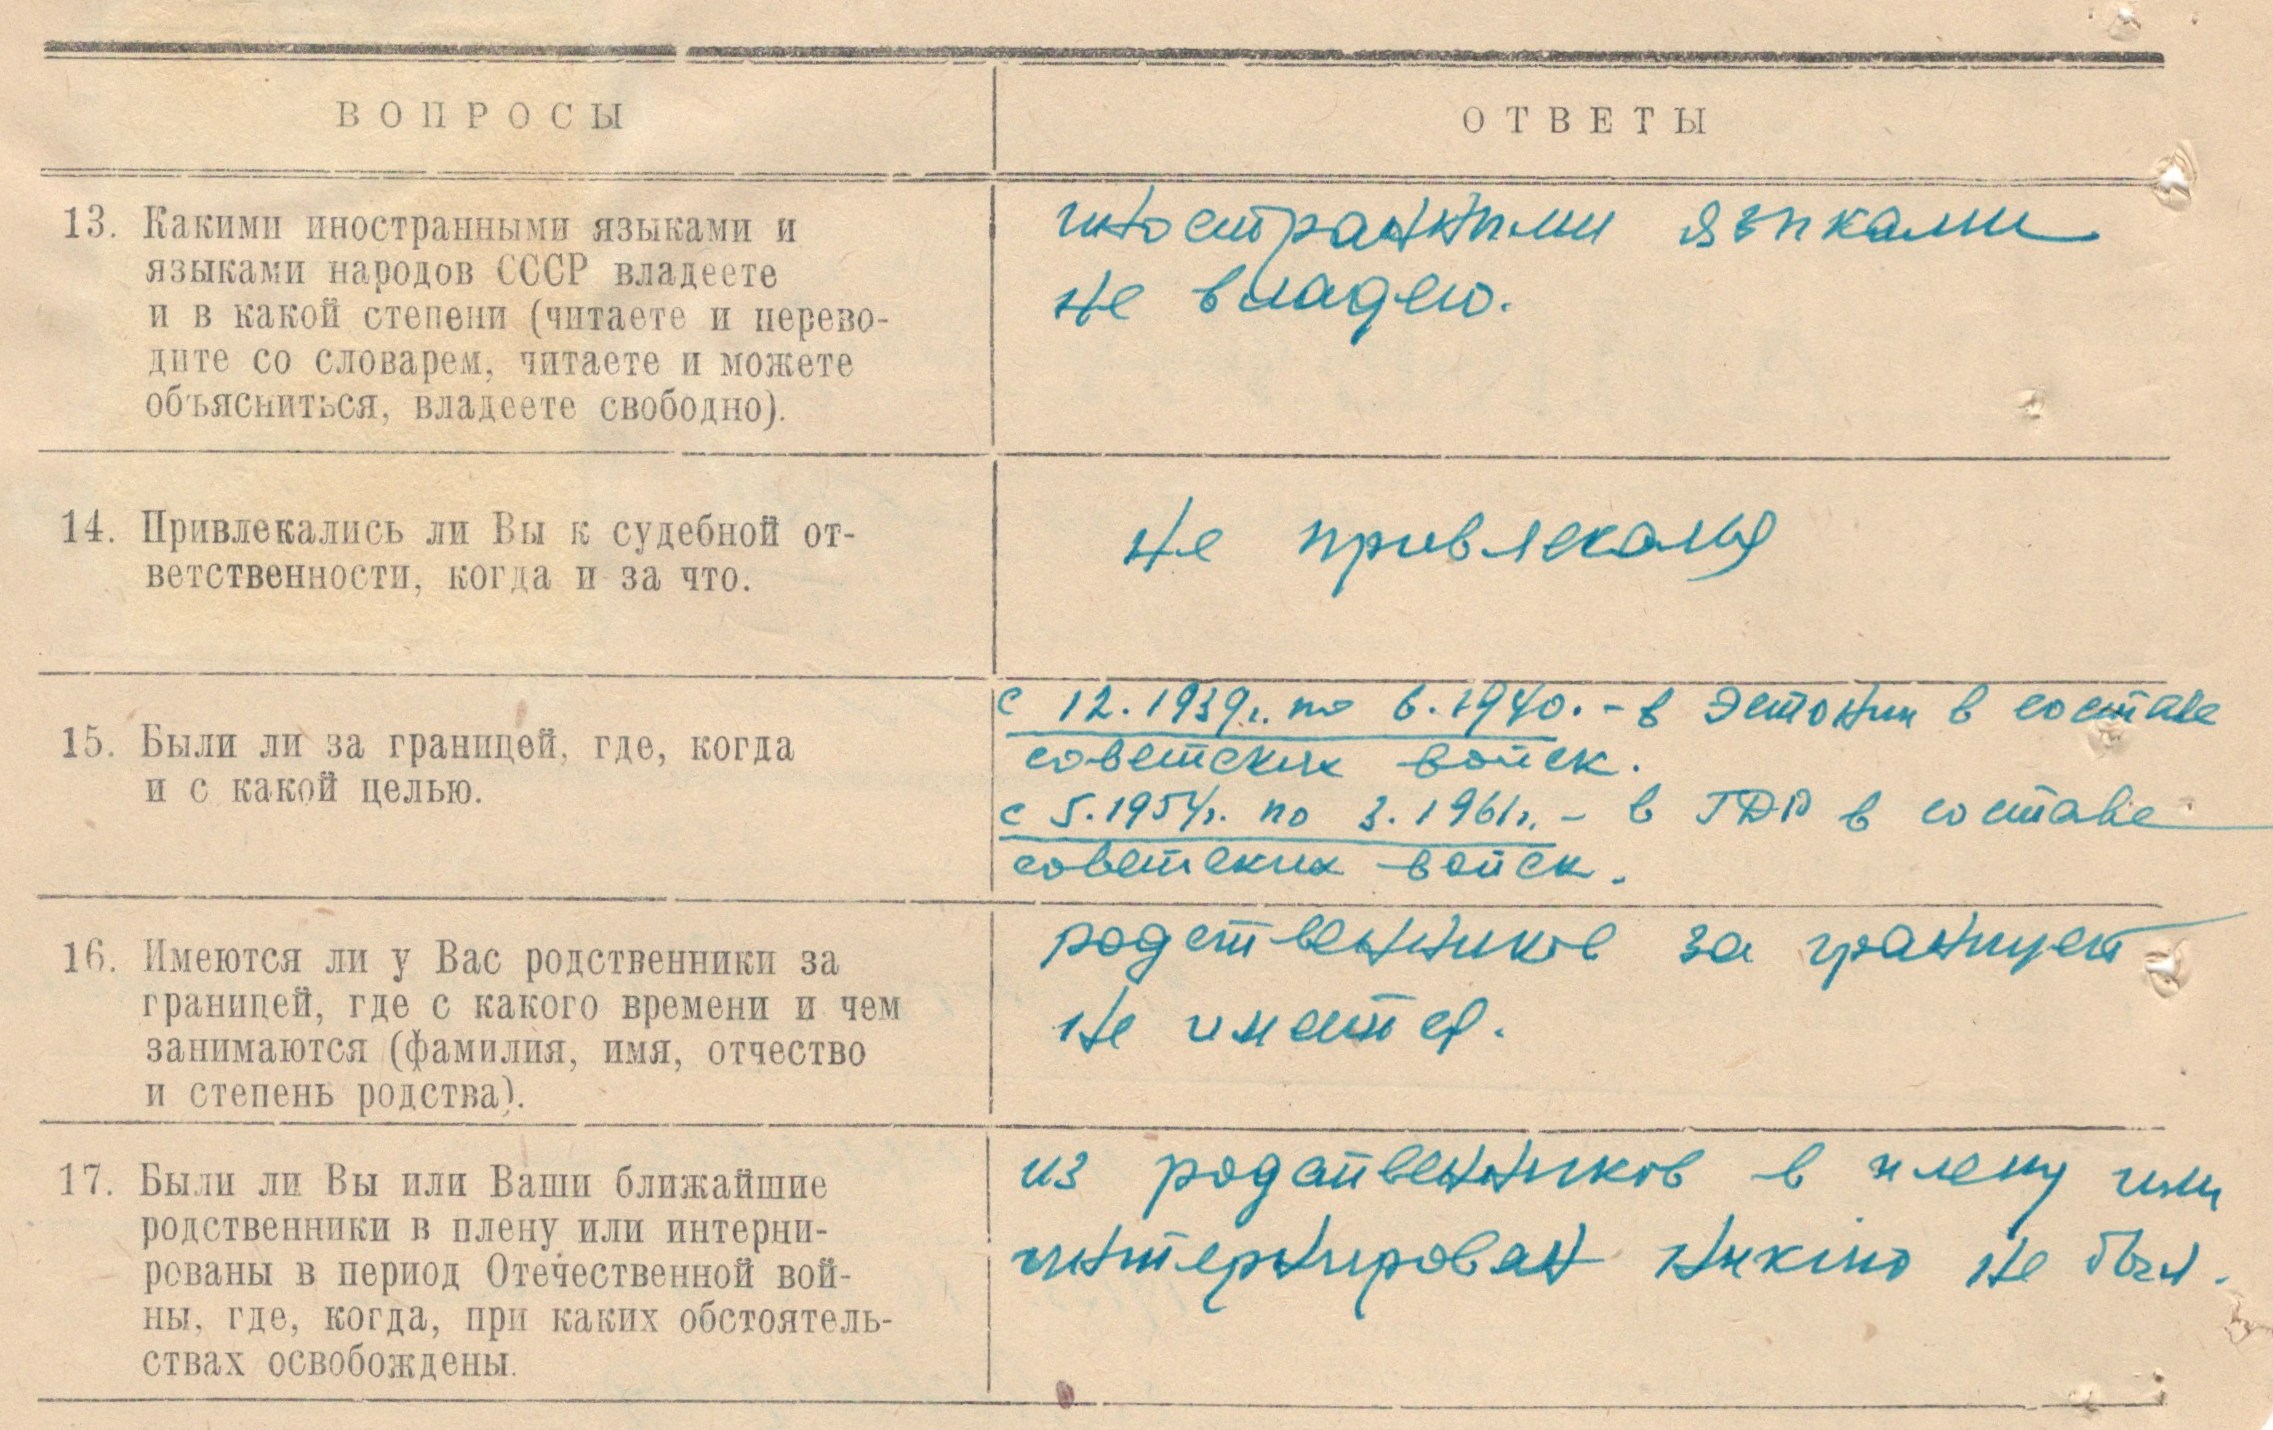 ВОПРОСЫ
ОТВЕТЫ
13. Какими иностранными языками и
языками народов СССР владеете
и в какой степени (читаете и перево-
дите со словарем, читаете и можете
объясниться, владеете свободно).
иностранными языками
не владею.
14. Привлекались ли Вы к судебной от-
ветственности, когда и за что.
не привлекался
15. Были ли за границей, где, когда
и с какой целью.
с 12.1939г. по 6.1940. - в Эстонии в составе
советских войск.
с 5.1954г. по 3.1961г. - в ГДР в составе
советских войск.
16. Имеются ли у Вас родственники за
границей, где с какого времени и чем
занимаются (фамилия, имя, отчество
и степень родства).
родственников за границей
не имеется.
17. Были ли Вы или Ваши ближайшие
родственники в плену или интерни-
рованы в период Отечественной вой-
ны, где, когда, при каких обстоятель-
ствах освобождены.
из родственников в плену или
интернирован никто не был.